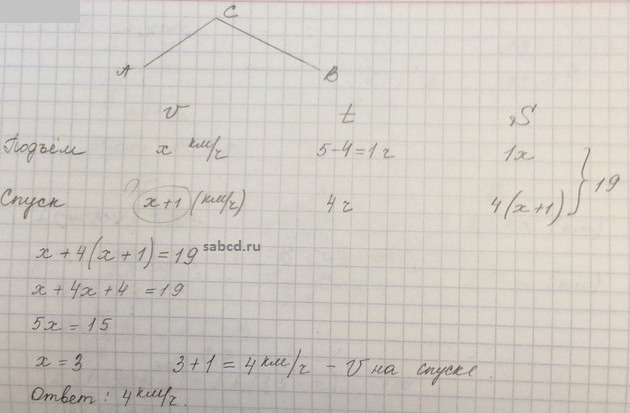 C
A
B
v t S
Подъём x км/ч 5-4=1 ч 1x
} 19
Спуск ? x+1 (км/ч) 4 ч 4(x+1)
x+4(x+1)=19
sabcd.ru
x+4x+4 =19
5x=15
x=3 3+1=4 км/ч - v на спуске.
Ответ: 4 км/ч.